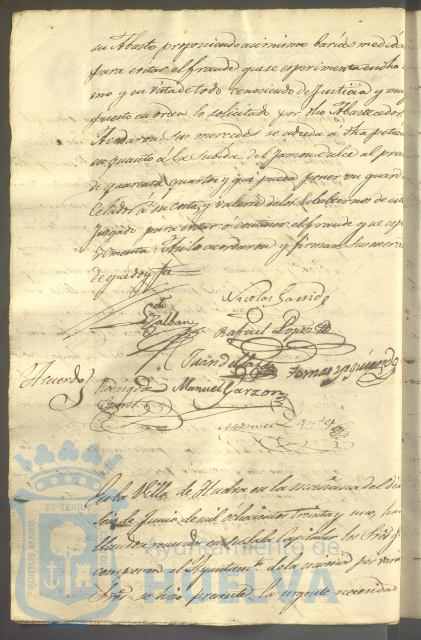 su Abasto proponiendo asimismo barias medidas
para evitar el fraude que se esperimenta en dho
mo y en vista de todo conociendo de Justicia y muy
puesto en orden lo solicitado por dho Abastezador
Acordaron sus mercedes se acceda a dha petic
en quanto á la subida del Jamon dulce al prec
de quarenta quartos y que pueda poner un guarda
Celador a su costa, y valerse de los
Juzgado para evitar ó contener el fraude que esp
rimenta: Asi lo acordaron y firman sus merce
de que doy fee
Nicolas Garrido
Galban
Rafael Lopez
Juan de
Tomas Izquierdo
Acuerdo
Manuel Garzon
Manuel
En la Villa de Huelva en la mañana del dia
seis de Junio de mil ochocientos treinta y uno, ha
llandose reunidos en su Sala Capitular los Sres q.
componen el Ayuntam.to de la misma por varios
Sres se hizo presente la urgente necesidad
PORTUS MARIS
ET TERRÆ
Ayuntamiento de
HUELVA